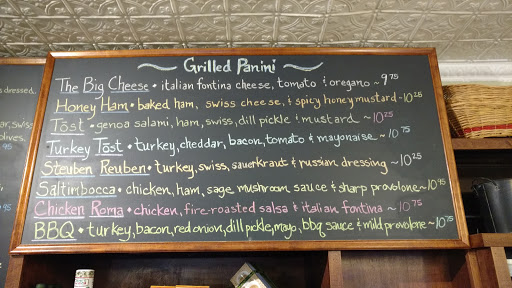 ~ Grilled Panini ~
The Big Cheese • italian fontina cheese, tomato & oregano ~ 9.75
Honey Ham • baked ham, swiss cheese, & spicy honey mustard - 10.25
Tōst • genoa salami, ham, swiss, dill pickle & mustard ~ 10.25
Turkey Tōst • turkey, cheddar, bacon, tomato & mayonaise ~ 10.75
Steuben Reuben • turkey, swiss, sauerkraut & russian dressing ~ 10.25
Saltimbocca • chicken, ham, sage mushroom sauce & sharp provolone ~ 10.95
Chicken Roma • chicken, fire-roasted salsa & italian fontina ~ 10.75
BBQ • turkey, bacon, red onion, dill pickle, mayo, bbq sauce & mild provolone ~ 10.75